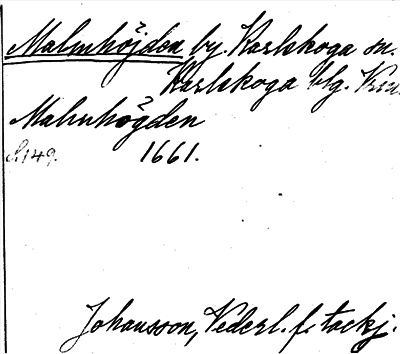 Malmhöjden by. Karlskoga sn.
Karlskoga blg. Vrml
Malmhögden
S. 149. 1661.
Johansson, Vederl. f. tackj.